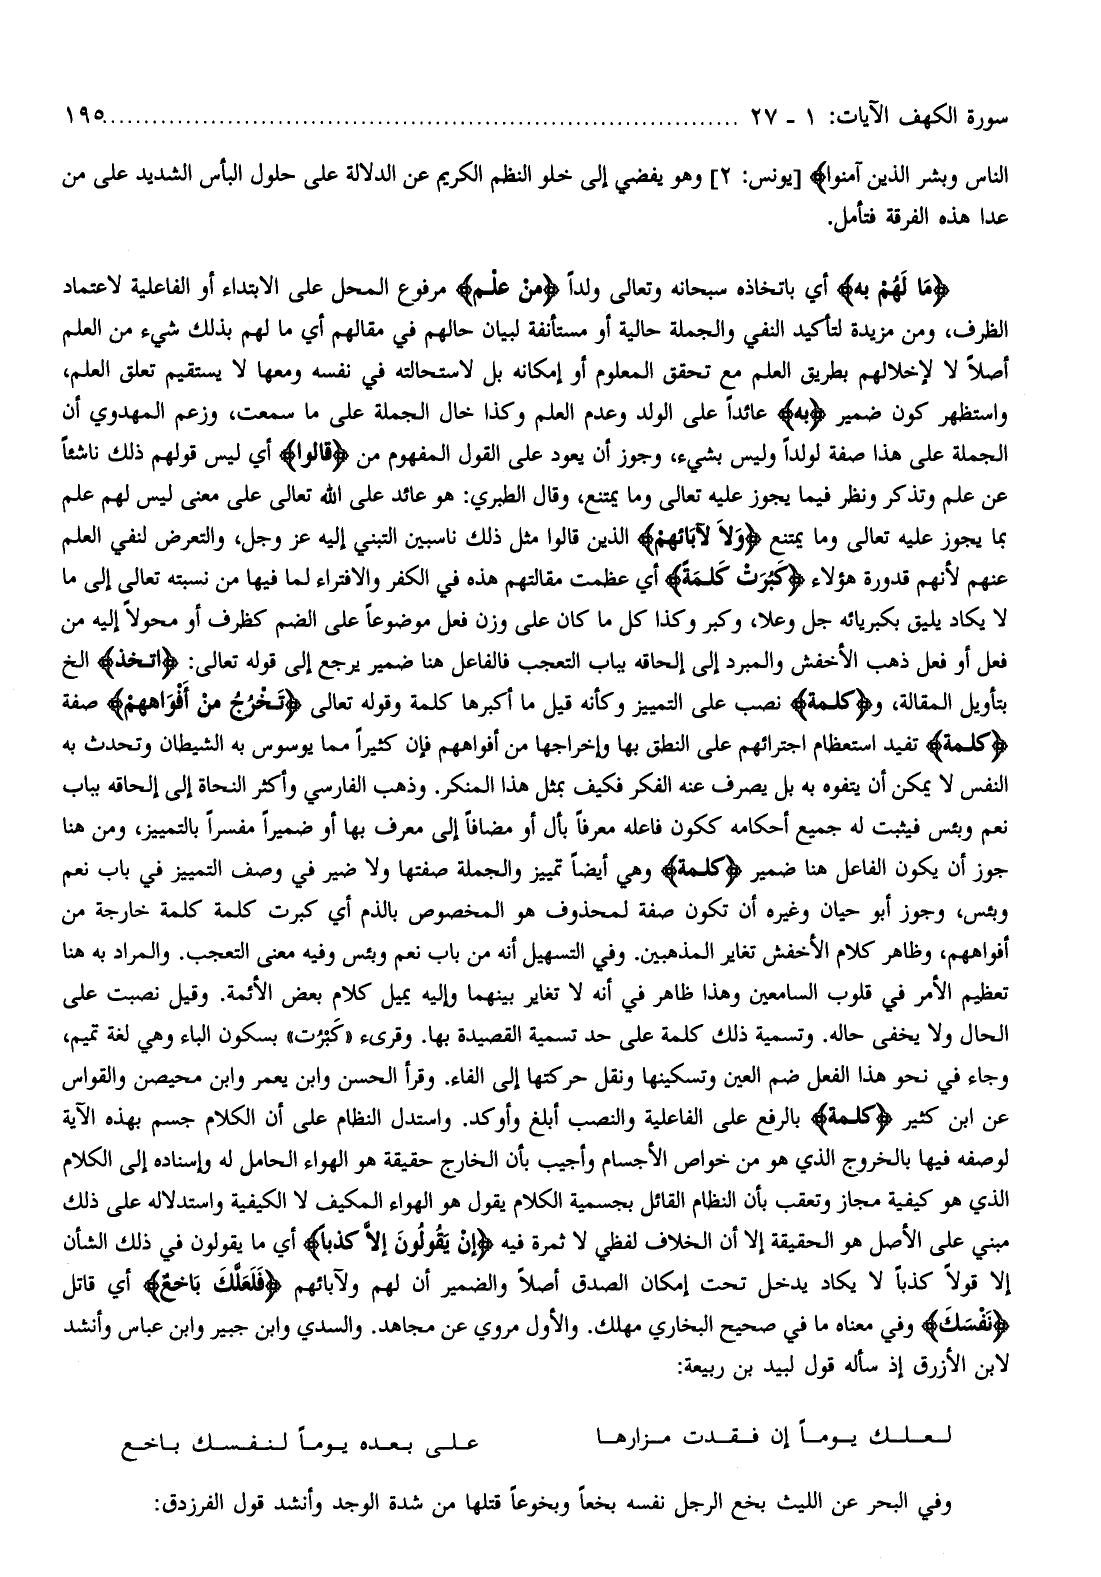 سورة الكهف الآيات: ١ - ٢٧ ........................................................................... ١٩٥
الناس وبشر الذين آمنوا﴾ [يونس: ٢] وهو يفضي إلى خلو النظم الكريم عن الدلالة على حلول البأس الشديد على من
عدا هذه الفرقة فتأمل.
﴿مَا لَهُمْ به﴾ أي باتخاذه سبحانه وتعالى ولداً ﴿منْ علْم﴾ مرفوع المحل على الابتداء أو الفاعلية لاعتماد
الظرف، ومن مزيدة لتأكيد النفي والجملة حالية أو مستأنفة لبيان حالهم في مقالهم أي ما لهم بذلك شيء من العلم
أصلاً لا لإخلالهم بطريق العلم مع تحقق المعلوم أو إمكانه بل لاستحالته في نفسه ومعها لا يستقيم تعلق العلم،
واستظهر كون ضمير ﴿به﴾ عائداً على الولد وعدم العلم وكذا خال الجملة على ما سمعت، وزعم المهدوي أن
الجملة على هذا صفة لولداً وليس بشيء، وجوز أن يعود على القول المفهوم من ﴿قالوا﴾ أي ليس قولهم ذلك ناشئاً
عن علم وتذكر ونظر فيما يجوز عليه تعالى وما يمتنع، وقال الطبري: هو عائد على الله تعالى على معنى ليس لهم علم
بما يجوز عليه تعالى وما يمتنع ﴿وَلاَ لآبَائهمْ﴾ الذين قالوا مثل ذلك ناسبين التبني إليه عز وجل، والتعرض لنفي العلم
عنهم لأنهم قدورة هؤلاء ﴿كَبُرَتْ كَلمَةً﴾ أي عظمت مقالتهم هذه في الكفر والافتراء لما فيها من نسبته تعالى إلى ما
لا يكاد يليق بكبريائه جل وعلا، وكبر وكذا كل ما كان على وزن فعل موضوعاً على الضم كظرف أو محولاً إليه من
فعل أو فعل ذهب الأخفش والمبرد إلى إلحاقه بباب التعجب فالفاعل هنا ضمير يرجع إلى قوله تعالى: ﴿اتخذ﴾ الخ
بتأويل المقالة، و﴿كلمة﴾ نصب على التمييز وكأنه قيل ما أكبرها كلمة وقوله تعالى ﴿تَخْرُجُ منْ أَفْوَاههمْ﴾ صفة
﴿كلمة﴾ تفيد استعظام اجترائهم على النطق بها وإخراجها من أفواههم فإن كثيراً مما يوسوس به الشيطان وتحدث به
النفس لا يمكن أن يتفوه به بل يصرف عنه الفكر فكيف بمثل هذا المنكر. وذهب الفارسي وأكثر النحاة إلى إلحاقه بباب
نعم وبئس فيثبت له جميع أحكامه ككون فاعله معرفاً بأل أو مضافاً إلى معرف بها أو ضميراً مفسراً بالتمييز، ومن هنا
جوز أن يكون الفاعل هنا ضمير ﴿كلمة﴾ وهي أيضاً تمييز والجملة صفتها ولا ضير في وصف التمييز في باب نعم
وبئس، وجوز أبو حيان وغيره أن تكون صفة لمحذوف هو المخصوص بالذم أي كبرت كلمة كلمة خارجة من
أفواههم، وظاهر كلام الأخفش تغاير المذهبين. وفي التسهيل أنه من باب نعم وبئس وفيه معنى التعجب. والمراد به هنا
تعظيم الأمر في قلوب السامعين وهذا ظاهر في أنه لا تغاير بينهما وإليه يميل كلام بعض الأئمة. وقيل نصبت على
الحال ولا يخفى حاله. وتسمية ذلك كلمة على حد تسمية القصيدة بها. وقرىء «كَبْرَت» بسكون الباء وهي لغة تميم،
وجاء في نحو هذا الفعل ضم العين وتسكينها ونقل حركتها إلى الفاء. وقرأ الحسن وابن يعمر وابن محيصن والقواس
عن ابن كثير ﴿كلمة﴾ بالرفع على الفاعلية والنصب أبلغ وأوكد. واستدل النظام على أن الكلام جسم بهذه الآية
لوصفه فيها بالخروج الذي هو من خواص الأجسام وأجيب بأن الخارج حقيقة هو الهواء الحامل له وإسناده إلى الكلام
الذي هو كيفية مجاز وتعقب بأن النظام القائل بجسمية الكلام يقول هو الهواء المكيف لا الكيفية واستدلاله على ذلك
مبني على الأصل هو الحقيقة إلا أن الخلاف لفظي لا ثمرة فيه ﴿إنْ يَقُولُونَ إلاَّ كذباً﴾ أي ما يقولون في ذلك الشأن
إلا قولاً كذباً لا يكاد يدخل تحت إمكان الصدق أصلاً والضمير أن لهم ولآبائهم ﴿فَلَعَلَّكَ بَاخعٌ﴾ أي قاتل
﴿نَفْسَكَ﴾ وفي معناه ما في صحيح البخاري مهلك. والأول مروي عن مجاهد. والسدي وابن جبير وابن عباس وأنشد
لابن الأزرق إذ سأله قول لبيد بن ربيعة:
لعلك يوماً إن فقدت مزارها على بعده يوماً لنفسك باخع
وفي البحر عن الليث بخع الرجل نفسه بخعاً وبخوعاً قتلها من شدة الوجد وأنشد قول الفرزدق: